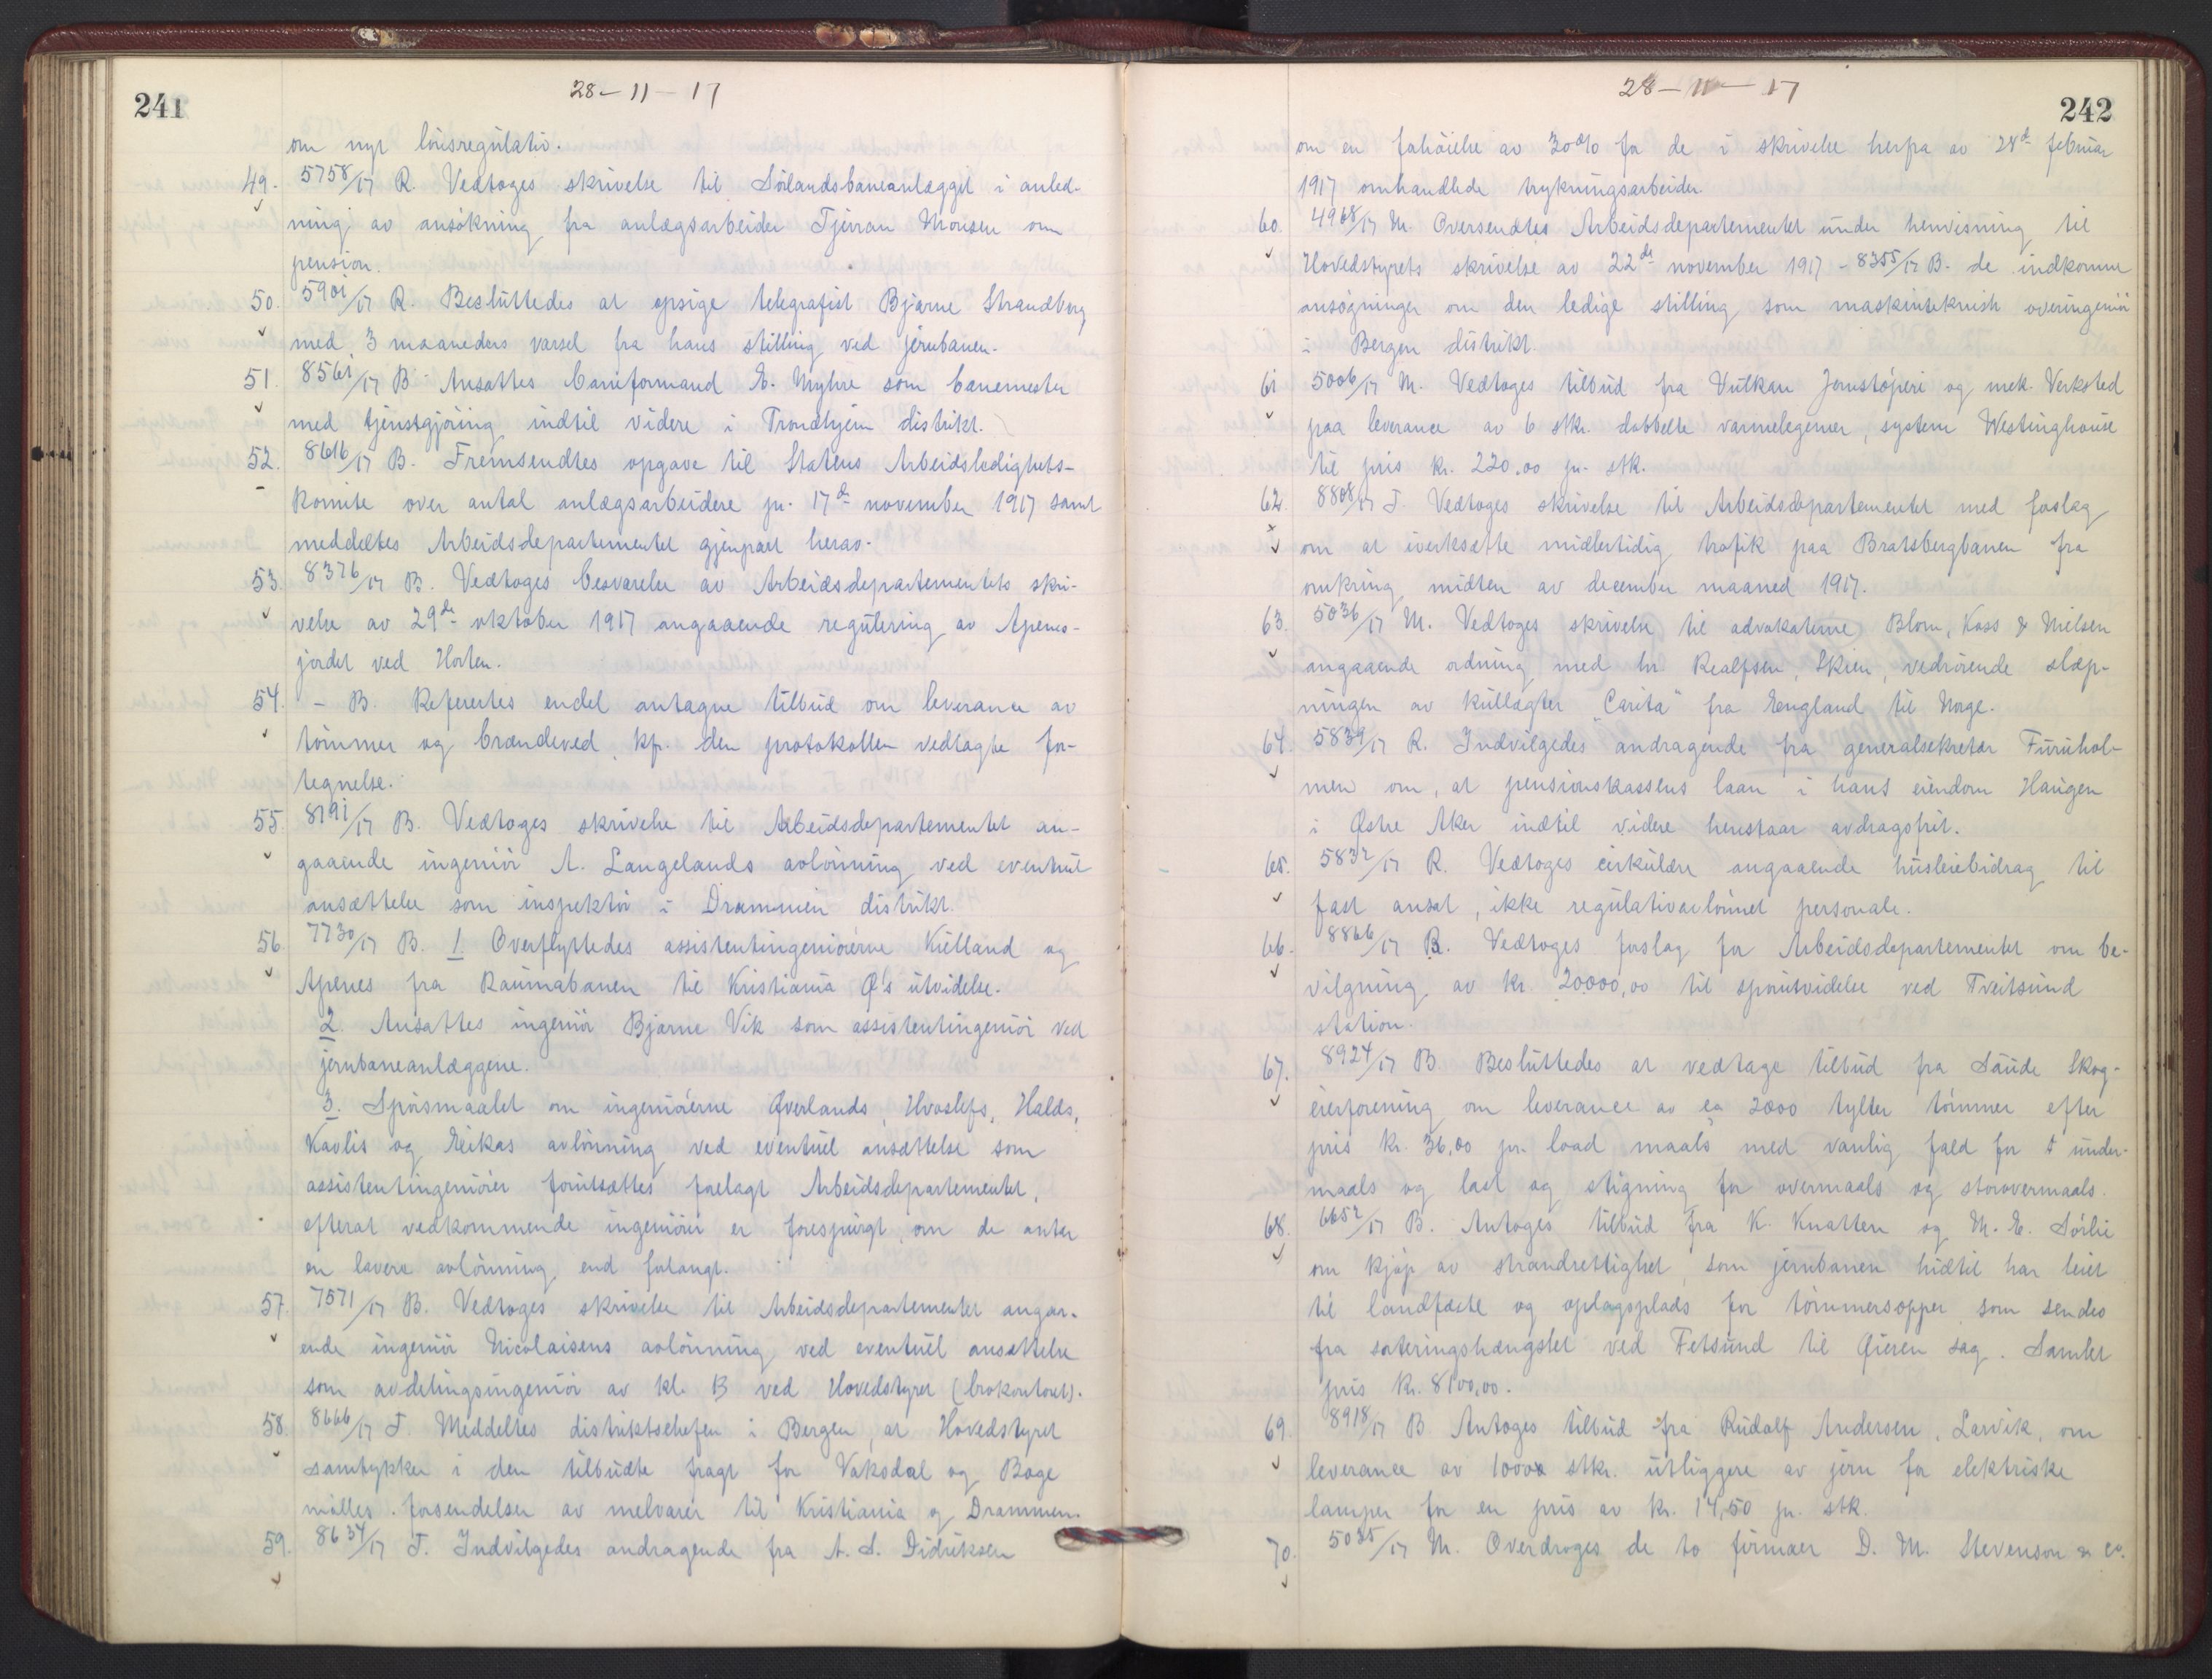 241
28-11-17
om nyt lönsregulativ.
49. 5758/17 R. Vedtoges skrivelse til Sörlandsbaneanlægget i anled-
ning av ansökning fra anlægsarbeider Tjerran Monsen om
pension.
50. 5901/17 R. Besluttedes at opsige telegrafist Bjarne Strandberg
med 3 maaneders varsel fra hans stilling ved jernbanen.
51. 8561/17 B Ansattes baneformand E. Myhre som banemester
med tjenstgjöring indtil videre i Trondhjem distrikt.
52. 8616/17 B. Fremsendtes opgave til Statens Arbeidsledighets-
komite over antal anlægsarbeidere pr. 17de november 1917 samt
meddeltes Arbeidsdepartementet gjenpart herav.
53. 8376/17 B. Vedtoges besvarelse av Arbeidsdepartementets skri-
velse av 29de oktober 1917 angaaende regulering av Apenes-
jordet ved Horten.
54. - B. Refereertes endel antagne tilbud om leveranse av
tömmer og brændeved kfr. den protokollen vedlagte for-
tegnelse.
55. 8791/17 B. Vedtoges skrivelse til Arbeidsdepartementet an-
gaaende ingeniör A. Langelands avlönning ved eventuel
ansættelse som inspektör i Drammen distrikt.
56. 7730/17 B. 1. Overflyttedes assistentingeniörerne Kielland og
Apenes fra Raumabanen til Kristiania Ø's utvidelse.
2. Ansattes ingeniör Bjarne Vik som assistentingeniör ved
jernbaneanlæggene.
3. Spörsmaalet om ingeniörerne Øverlands, Hvoslefs, Halds,
Kavlis og Eikas avlönning ved eventuel ansættelse som
assistentingeniörer forutsættes forelagt Arbeidsdepartementet,
efterat vedkommende ingeniörer er forespurgt, om de antar
en lavere avlönning end forlangt.
57. 7571/17 B. Vedtoges skrivelse til Arbeidsdepartementet angaa-
ende ingeniör Nicolaisens avlönning ved eventuel ansættelse
som avdelingsingeniör av kl. B ved Hovedstyret (brokontoret).
58. 8666/17 T. Meddeltes distriktschefen i Bergen, at Hovedstyret
samtykker i den tilbudte fragt for Vaksdal og Boge
möllers forsendelser av melvarer til Kristiania og Drammen.
59. 8634/17 T. Indvilgedes andragende fra A. S. Didriksen
28-11-17
242
om en forhöielse av 30 % for de i skrivelse herfra av 28de februar
1917 omhandlede trykningsarbeider.
60. 4968/17 M. Oversendtes Arbeidsdepartementet under henvisning til
Hovedstyrets skrivelse av 22de november 1917 - 8355/17 B. de indkomne
ansögninger om den ledige stilling som maskinteknisk overingeniör
i Bergen distrikt.
61 5006/17 M. Vedtoges tilbud fra Vulkan Jernstöperi og mek. Verksted
paa leverance av 6 stkr. dobbelte varmelegemer, system Westinghouse
til pris kr. 220.00 pr. stk.
62 8808/17 T. Vedtoges skrivelse til Arbeidsdepartementet med forslag
om at iverksætte midlertidig trafik paa Bratsbergbanen fra
omkring midten av december maaned 1917.
63. 5036/17 M. Vedtoges skrivelse til advokaterne Blom, Koss & Nielsen
angaaende ordning med hr Realfsen, Skien, vedrörende slæp-
ningen av kullægter "Carita" fra England til Norge.
64. 5839/17 R. Indvilgedes andragende fra generalsekretær Furuhol-
men om, at pensionskassens laan i hans eiendom Haugen
i Østre Aker indtil videre henstaar avdragsfrit.
65. 5832/17 R. Vedtoges cirkulære angaaende husleiebidrag til
fast ansat, ikke regulativavlönnet personale.
66. 8866/17 B. Vedtoges forslag for Arbeidsdepartementet om be-
vilgning av kr. 20000,00 til sporutvidelse ved Tveitsund
station.
67. 8924/17 B. Besluttedes at vedtage tilbud fra Saude Skog-
eierforening om leverance av ca 2000 tylter tömmer efter
pris kr. 36,00 pr. load maals med vanlig fald for under-
maals og last og stigning for overmaals og storovermaals.
68. 6652/17 B. Antoges tilbud fra K. Knatten og M. E. Sörlie
om kjöp av strandrettighet, som jernbanen hidtil har leiet
til landfæste og oplagsplads for tömmersopper som sendes
fra sorteringshængslet ved Fetsund til Öieren sag. Samlet
pris kr. 8100,00.
69. 8918/17 B Antoges tilbud fra Rudolf Andersen, Larvik, om
leverance av 10000 stkr. utliggere av jern for elektriske
lamper for en pris av kr. 14,50 pr. stk.
70. 5035/17 M. Overdroges de to firmaer D. M. Stevenson & Co.